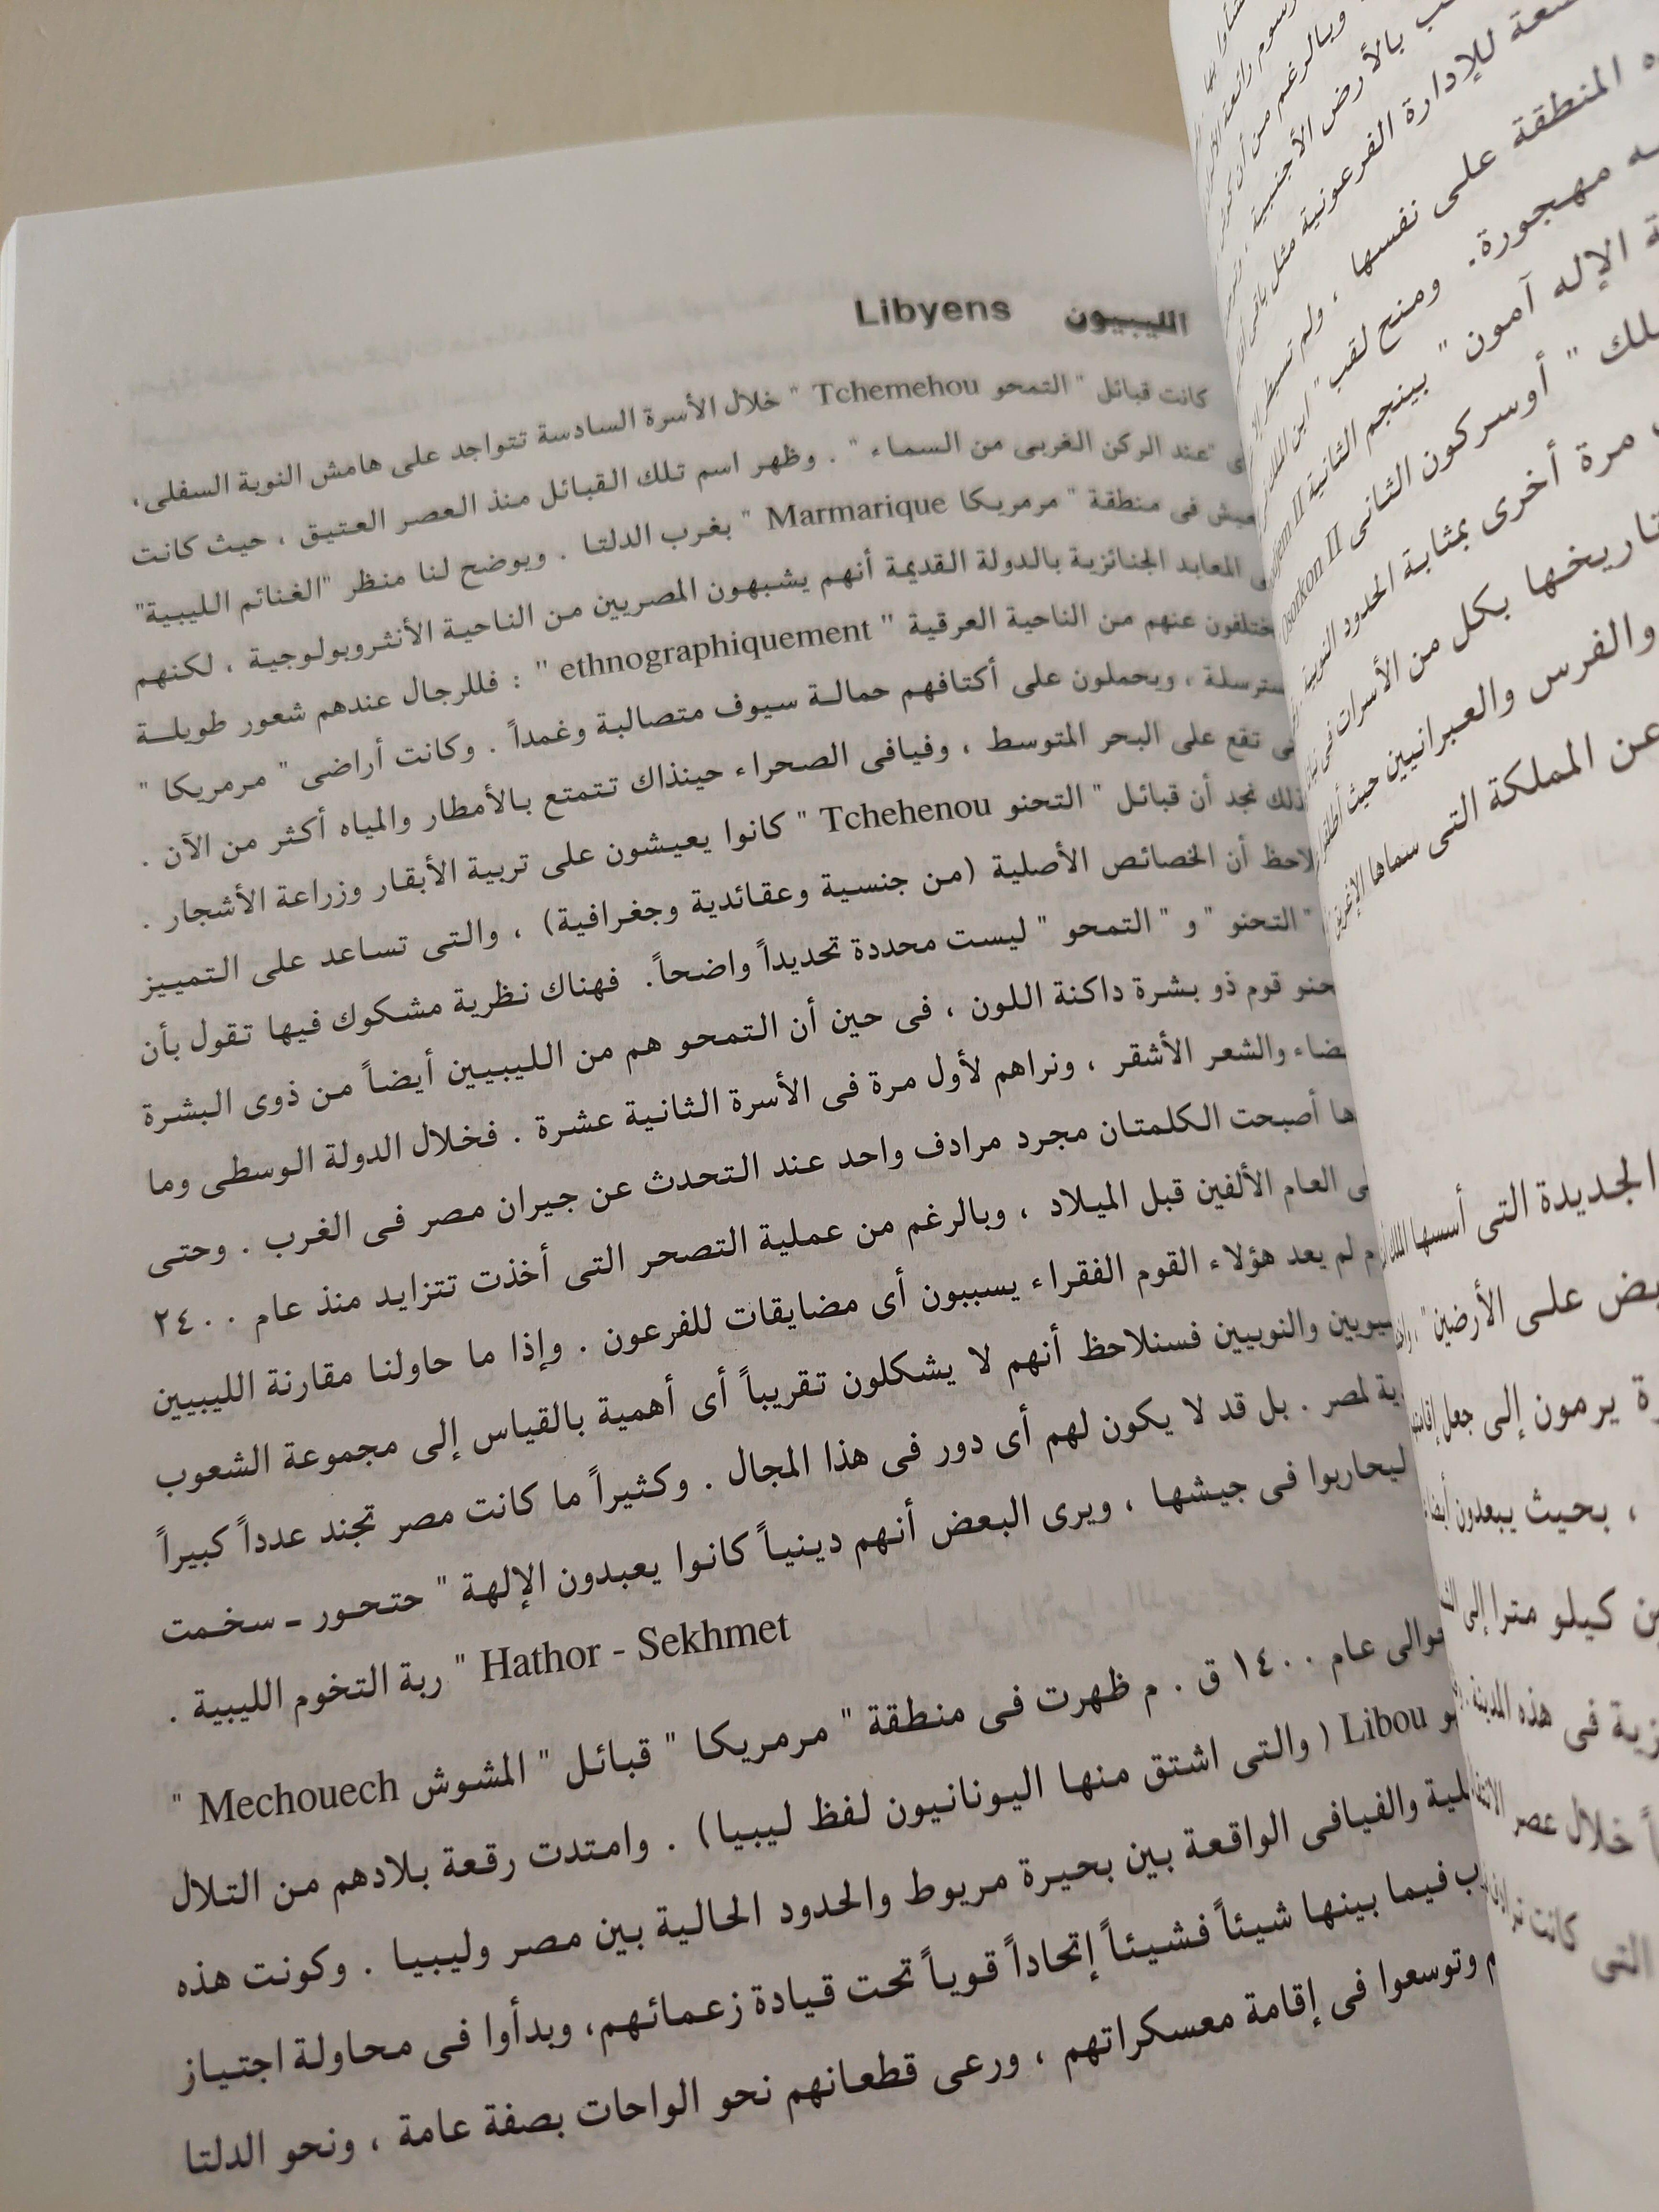 الليبيون Libyens
كانت قبائل " التمحو Tchemehou " خلال الأسرة السادسة تتواجد على هامش النوبة السفلى،
"عند الركن الغربى من السماء " . وظهر اسم تلك القبائل منذ العصر العتيق ، حيث كانت
فى منطقة " مرمريكا Marmarique " بغرب الدلتا . ويوضح لنا منظر "الغنائم الليبية"
المعابد الجنائزية بالدولة القديمة أنهم يشبهون المصريين من الناحية الأنثروبولوجية ، لكنهم
عنهم من الناحية العرقية " ethnographiquement " : فللرجال عندهم شعور طويلة
، ويحملون على أكتافهم حمالة سيوف متصالبة وغمداً . وكانت أراضى " مرمريكا "
تقع على البحر المتوسط ، وفيافى الصحراء حينذاك تتمتع بالأمطار والمياه أكثر من الآن .
نجد أن قبائل " التحنو Tchehenou " كانوا يعيشون على تربية الأبقار وزراعة الأشجار .
أن الخصائص الأصلية (من جنسية وعقائدية وجغرافية) ، والتى تساعد على التمييز
" التحنو " و " التمحو " ليست محددة تحديداً واضحاً. فهناك نظرية مشكوك فيها تقول بأن
قوم ذو بشرة داكنة اللون ، فى حين أن التمحو هم من الليبيين أيضاً من ذوى البشرة
والشعر الأشقر ، ونراهم لأول مرة فى الأسرة الثانية عشرة . فخلال الدولة الوسطى وما
أصبحت الكلمتان مجرد مرادف واحد عند التحدث عن جيران مصر فى الغرب . وحتى
العام الألفين قبل الميلاد ، وبالرغم من عملية التصحر التى أخذت تتزايد منذ عام ٢٤٠٠
لم يعد هؤلاء القوم الفقراء يسببون أى مضايقات للفرعون . وإذا ما حاولنا مقارنة الليبيين
والنوبيين فسنلاحظ أنهم لا يشكلون تقريباً أى أهمية بالقياس إلى مجموعة الشعوب
لمصر . بل قد لا يكون لهم أى دور فى هذا المجال . وكثيراً ما كانت مصر تجند عدداً كبيراً
ليحاربوا فى جيشها ، ويرى البعض أنهم دينياً كانوا يعبدون الإلهة " حتحور ـ سخمت
Hathor - Sekhmet " ربة التخوم الليبية .
عام ١٤٠٠ ق . م ظهرت فى منطقة " مرمريكا " قبائل " المشوش Mechouech "
Libou ( والتى اشتق منها اليونانيون لفظ ليبيا) . وامتدت رقعة بلادهم من التلال
والفيافى الواقعة بين بحيرة مريوط والحدود الحالية بين مصر وليبيا . وكونت هذه
فيما بينها شيئاً فشيئاً إتحاداً قوياً تحت قيادة زعمائهم، وبدأوا فى محاولة اجتياز
وتوسعوا فى إقامة معسكراتهم ، ورعى قطعانهم نحو الواحات بصفة عامة ، ونحو الدلتا
بالأرض الأجنبية
للإدارة الفرعونية مثل باقى
المنطقة على نفسها ، ولم
مهجورة. ومنح لقب " ابن الملك
الإله آمون " بينجم الثانية
" أوسركون الثانى Osorkon II
مرة أخرى بمثابة الحدود
تاريخها بكل من الأسرات
والفرس والعبرانيين حيث
عن المملكة التى سماها
الجديدة التى أسسها
على الأرضين"
يرمون إلى جعل
، بحيث يبعدون
كيلو مترا إلى
فى هذه المدينة
خلال عصر
التى كانت